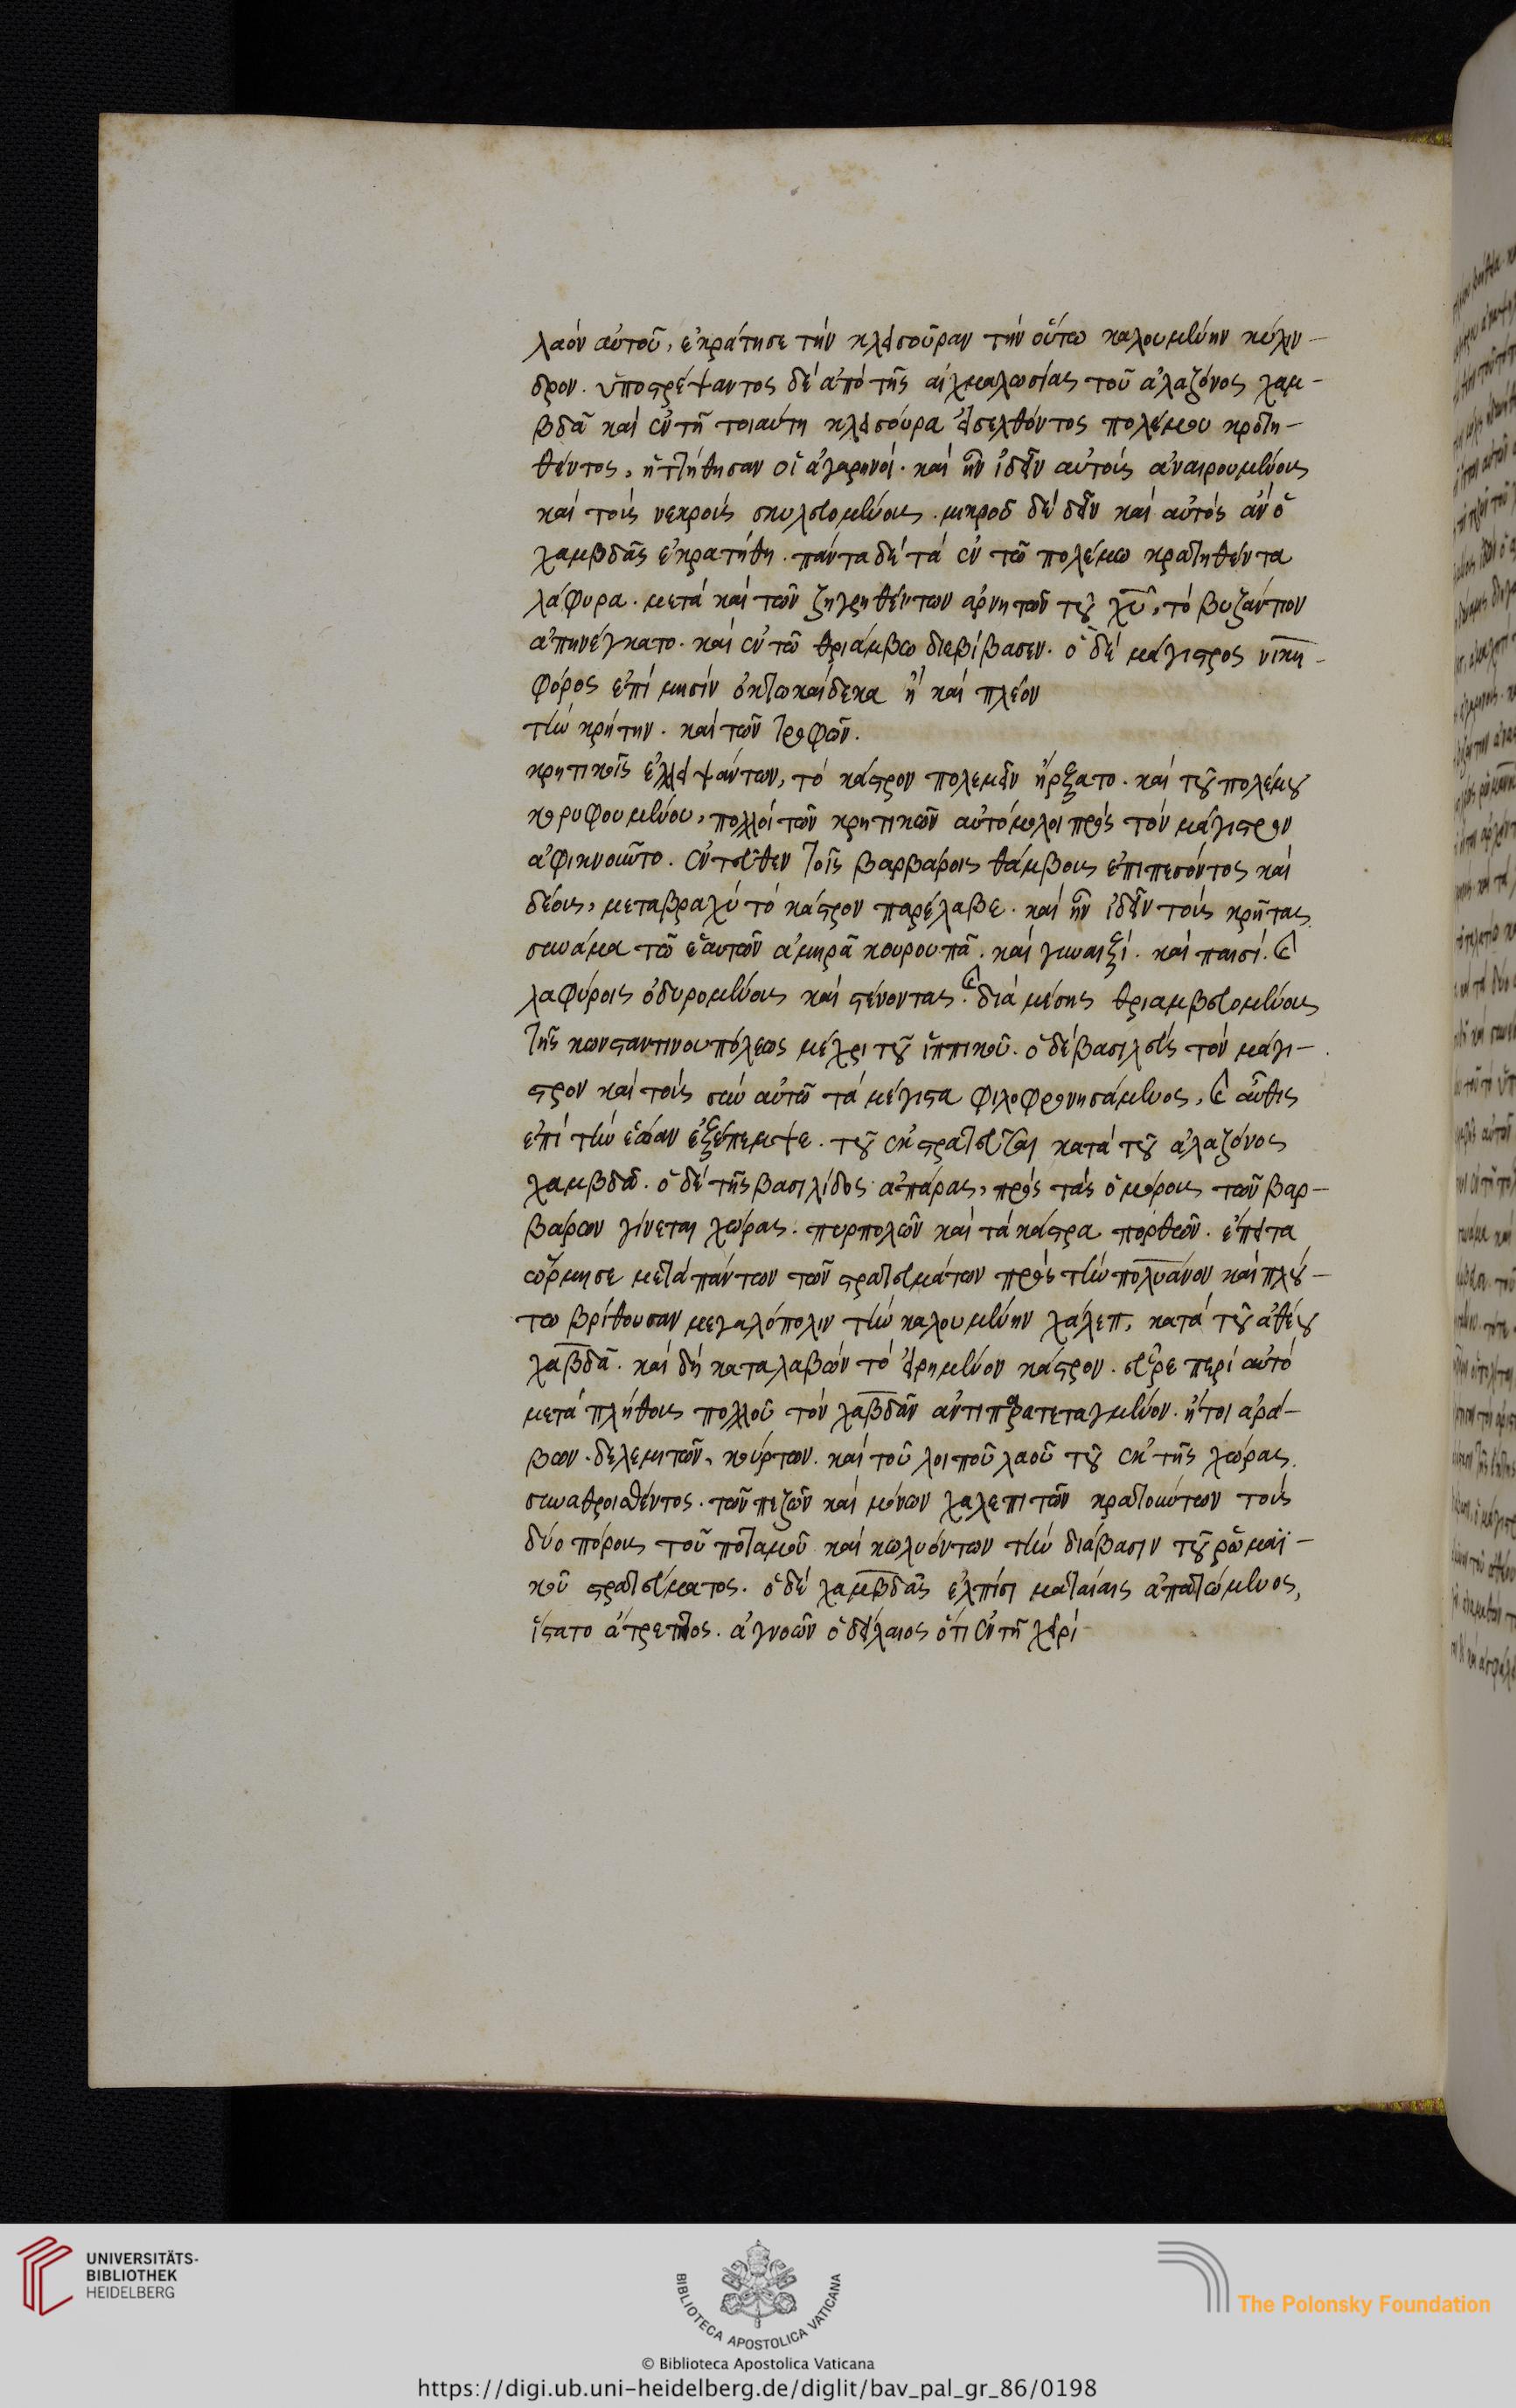 λαόν αὐτοῦ, ἐκράτησε τήν κλεισοῦραν τήν οὕτω καλουμένην κύλιν-
δρον. ὑποστρέψαντος δέ ἀπό τῆς αἰχμαλωσίας τοῦ ἀλαζόνος χαμ-
βδᾶ καί ἐν τῆ τοιαύτη κλεισούρα εἰσελθόντος πολέμου κροτη-
θέντος, ἡττήθησαν οἱ ἀγαρηνοί. καί ἦν ἰδεῖν αὐτούς ἀναιρουμένους
καί τούς νεκρούς σκυλευομένους. μικροῦ δέ δεῖν καί αὐτός ἀν ὁ
χαμβδᾶς ἐκρατήθη. πάντα δέ τά ἐν τῶ πολέμω κρατηθέντα
λάφυρα. μετά καί τῶν ζηγρηθέντων ἀρνητῶν τοῦ χυ, τό βυζάντιον
ἀπηνέγκατο. καί ἐν τῶ θριάμβω διεβίβασεν. ὁ δέ μάγιστρος νικη-
φόρος ἐπί μησίν ὀκτωκαίδεκα ἤ καί πλέον
τήν κρήτην. καί τῶν τροφῶν.
κρητικοῖς ἐλλειψάντων, τό κάστρον πολεμεῖν ἤρξατο. καί τοῦ πολέμου
κορυφουμένου, πολλοί τῶν κρητικῶν αὐτόμολοι πρός τόν μάγιστρον
ἀφικνοιῶτο. ἐντεῦθεν τοῖς βαρβάροις θάμβους ἐπιπεσόντος καί
δέους, μεταβραχύ τό κάστρον παρέλαβε. καί ἦν ἰδεῖν τούς κρῆτας
συνάμα τῶ ἑαυτῶν ἀμηρᾶ κουρουπᾶ. καί γυναιξί. καί παισί. καί
λαφύροις ὀδυρομένους καί στένοντας. καί διά μέσης θριαμβευομένους
τῆς κωνσταντινουπόλεως μέχρι τοῦ ἱππικοῦ. ὁ δέ βασιλεύς τόν μάγι-
στρον καί τούς σύν αὐτῶ τά μέγιστα φιλοφρονησάμενος, καί αὖθις
ἐπί τήν ἑώαν ἐξέπεμψε. τοῦ ἐκστρατεῦσαι κατά τοῦ ἀλαζόνος
χαμβδᾶ. ὁ δέ τῆς βασιλίδος ἀπάρας, πρός τάς ὁμόρους τῶν βαρ-
βάρων γίνεται χώρας. πυρπολῶν καί τά κάστρα πορθῶν. ἔπειτα
ὥρμησε μετά πάντων τῶν στρατευμάτων πρός τήν πολυάνον καί πλού-
τω βρίθουσαν μεγαλόπολιν τήν καλουμένην χάλεπ, κατά τοῦ ἀθέου
χαβδᾶ. καί δή καταλαβών τό εἰρημένον κάστρον. εὗρε περί αὐτό
μετά πλήθους πολλοῦ τόν χαβδᾶν ἀντιπαρατεταγμένον. ἤτοι ἀρά-
βων. δελεμιτῶν. κούρτων. καί τοῦ λοιποῦ λαοῦ τοῦ ἐκ τῆς χώρας.
συναθροισθέντος. τῶν πεζῶν καί μόνων χαλεπιτῶν κρατούντων τούς
δύο πόρους τοῦ ποταμοῦ καί κωλυόντων τήν διάβασιν τοῦ ῥωμαϊ-
κοῦ στρατεύματος. ὁ δέ χαμβδᾶς ἐλπίσι ματαίαις ἀπατώμενος,
ἵστατο ἄτρεπτος. ἀγνοῶν ὁ δείλαιος ὅτι ἐν τῆ χειρί
UNIVERSITÄTS-
BIBLIOTHEK
HEIDELBERG
BIBLIOTECA APOSTOLICA VATICANA
The Polonsky Foundation
© Biblioteca Apostolica Vaticana
https://digi.ub.uni-heidelberg.de/diglit/bav_pal_gr_86/0198